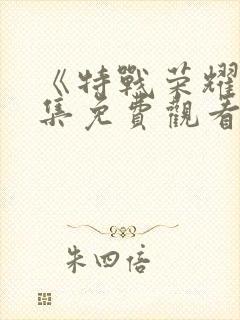 《特戰荣耀
集免費觀看
朱四倍